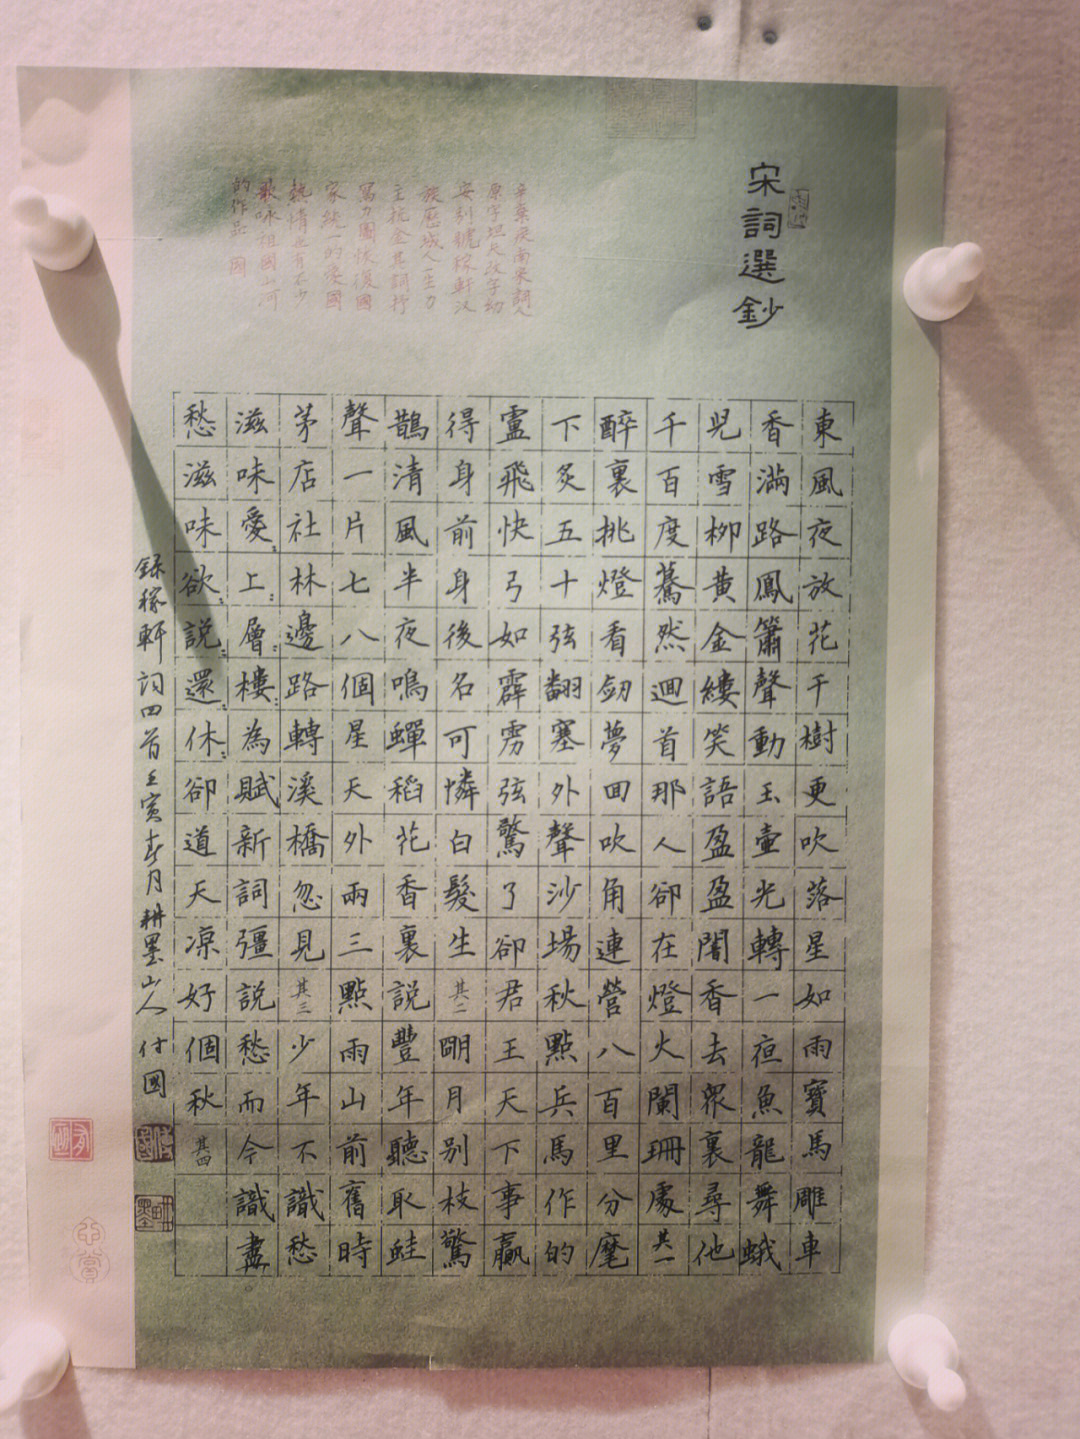 宋詞選鈔
辛棄疾南宋詞人
原字坦夫改字幼
安别號稼軒漢
族歷城人一生力
主抗金其詞抒
寫力圖恢復國
家統一的愛國
熱情也有不少
歌咏祖國山河
的作品 國
東風夜放花千樹更吹落星如雨寶馬雕車
香滿路鳳簫聲動玉壷光轉一夜魚龍舞蛾
兒雪柳黃金縷笑語盈盈闇香去衆裏尋他
千百度驀然迴首那人卻在燈火闌珊處其一
醉裏挑燈看劒夢回吹角連營八百里分麾
下炙五十弦翻塞外聲沙場秋點兵馬作的
盧飛快弓如霹靂弦驚了卻君王天下事贏
得身前身後名可憐白髮生其二明月别枝驚
鵲清風半夜鳴蟬稻花香裏說豐年聽取蛙
聲一片七八個星天外兩三點雨山前舊時
茅店社林邊路轉溪橋忽見其三少年不識愁
滋味愛〻上〻層〻樓〻為賦新詞彊說愁而今識盡
愁滋味欲〻說〻還〻休〻卻道天凉好個秋其四
錄稼軒詞四首壬寅春月耕墨山人付國